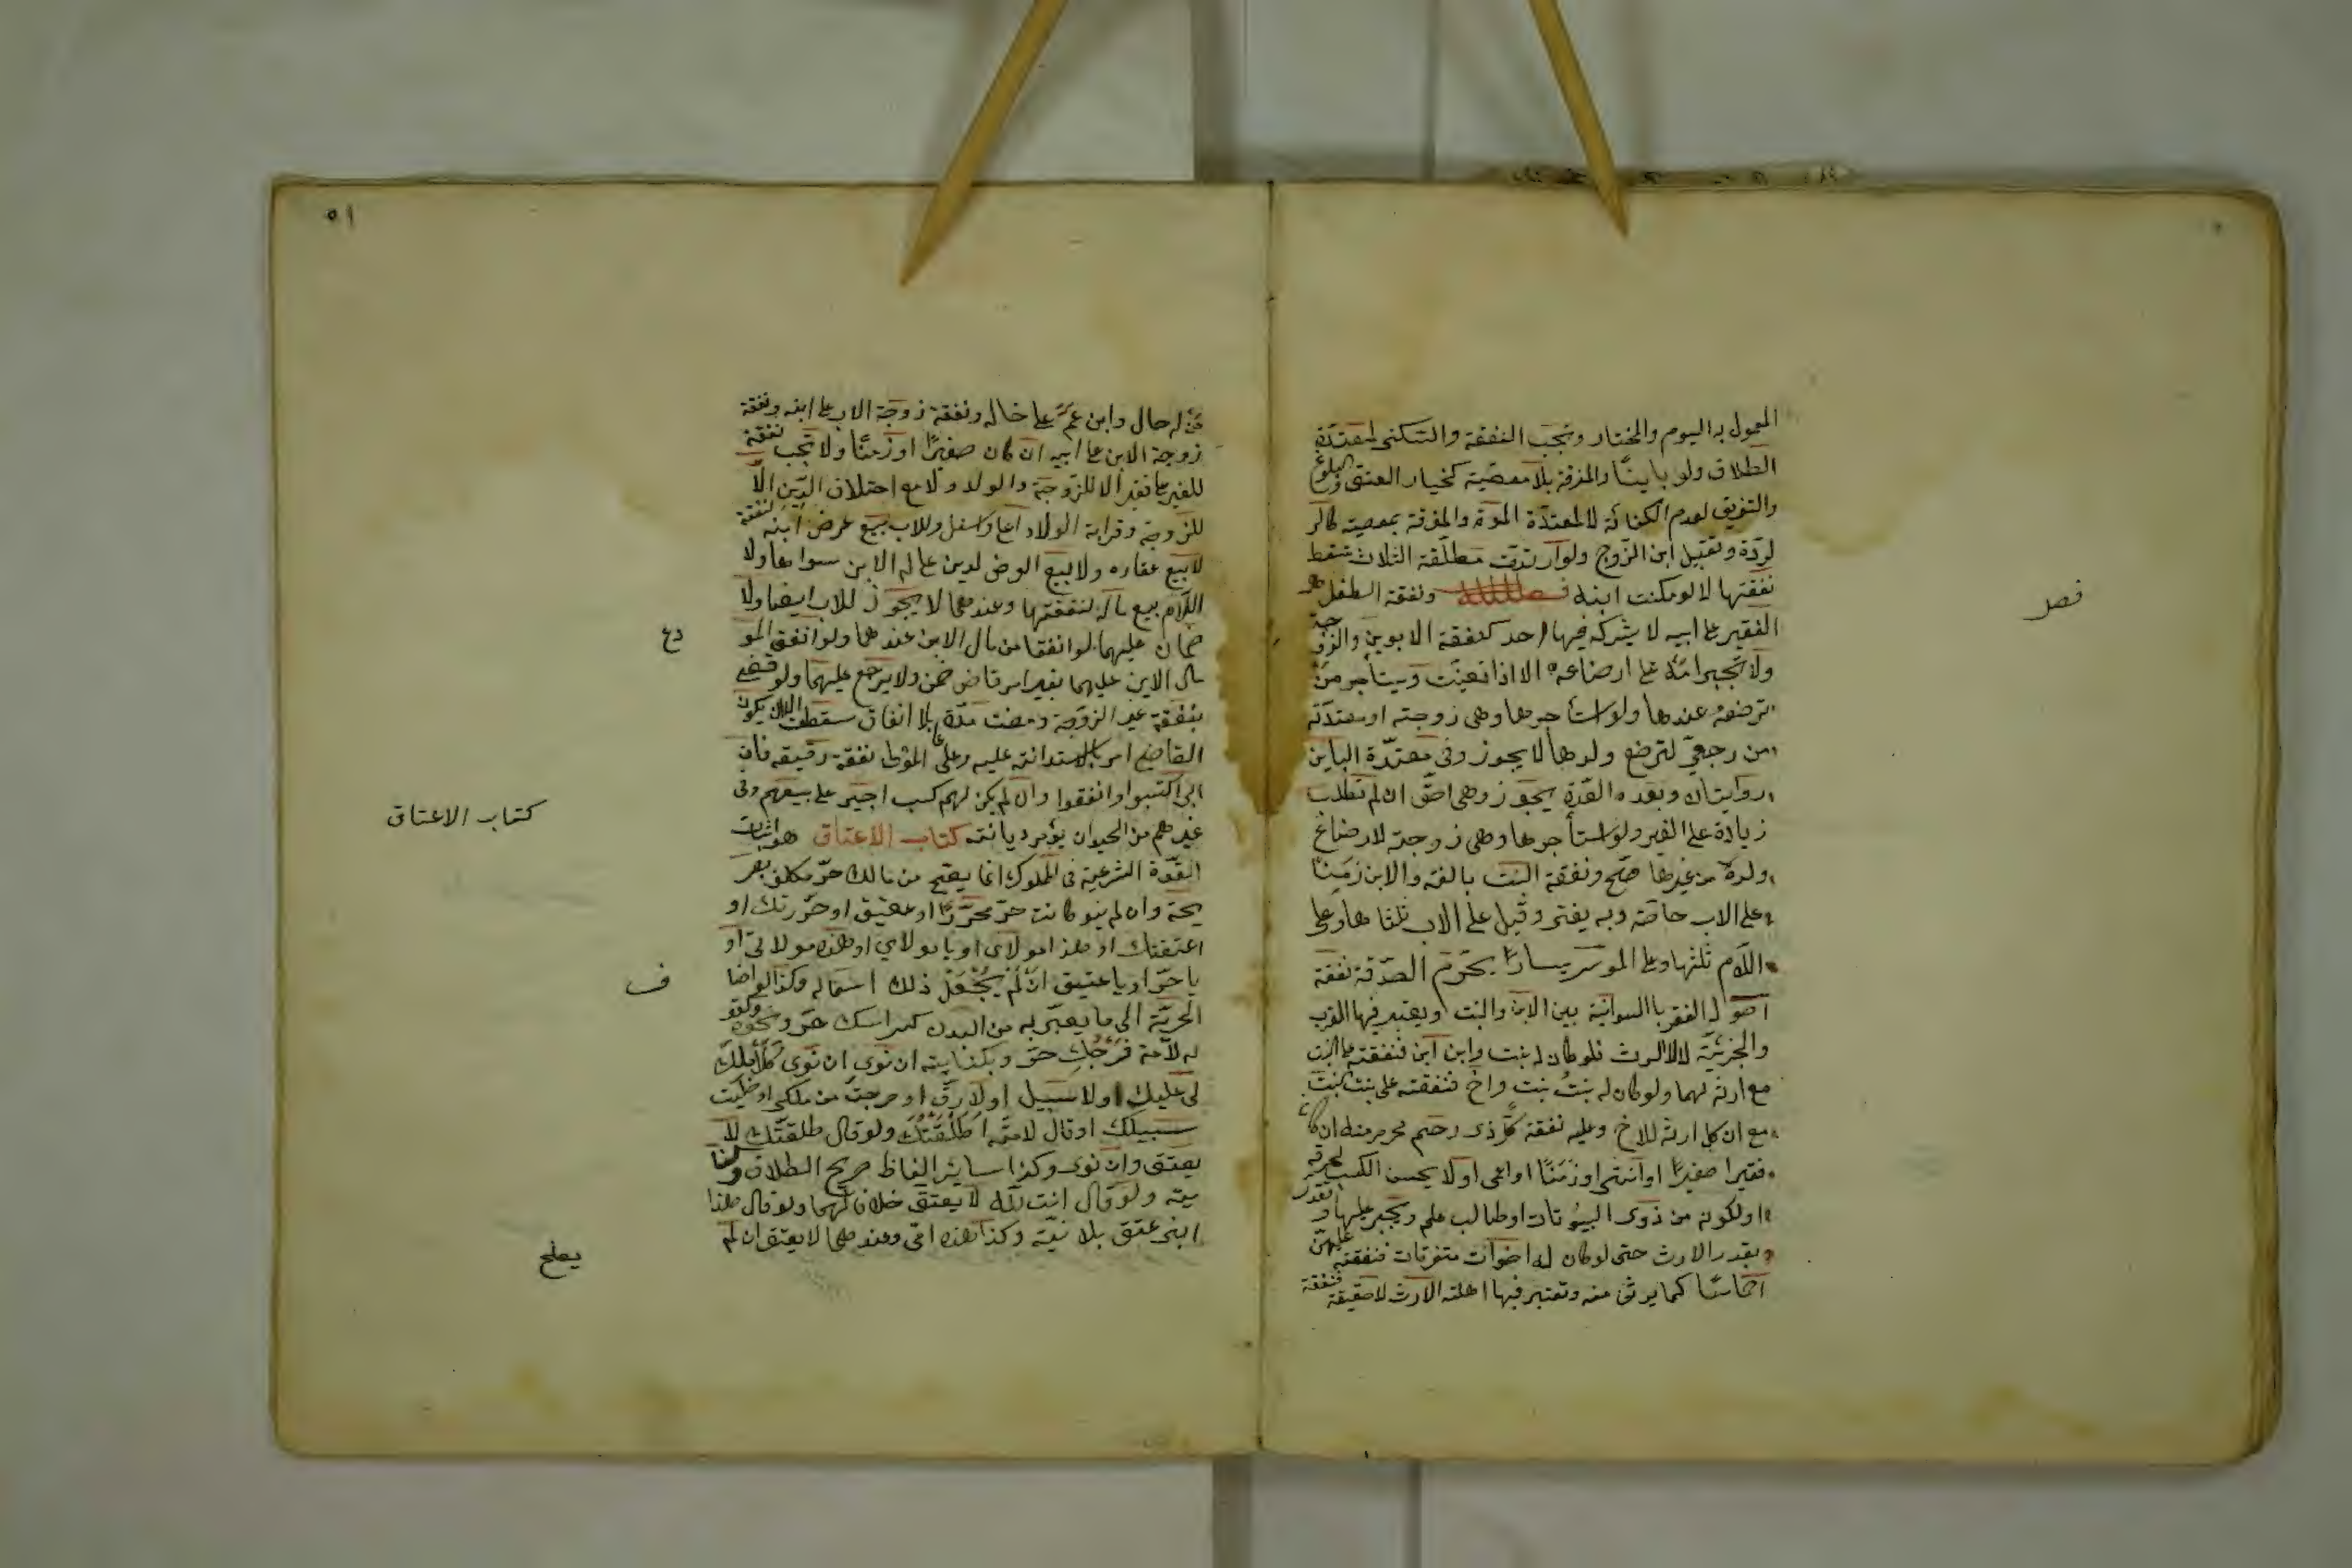 المعمول به اليوم والمختار وتجب النفقة والسكنى لمعتدة
الطلاق ولو باينًا والمفرقة بلا معصية كخيار العتق والبلوغ
والتفريق لعدم الكفائة لا لمعتدة الموت والمفرقة بمعصية كالر
لردة وتقبيل ابن الزوج ولو ارتدت مطلقة الثلاث سقط
نفقتها لا لو مكنت ابنه ونفقة الطفل
فصل
الفقير على ابيه لا يشركه فيها احد كنفقة الابوين والزوجة
ولا تجبر امه على ارضاعه الا اذا تعينت ويستأجر من
ترضعه عندها ولو استأجرها وهى زوجته او معتدته
من رجعي لترضع ولدها لا يجوز وفى معتدة الباين
روايتان وبعد العدة يجوز وهى احق ان لم تطلب
زيادة على الغير ولو استأجرها وهى زوجته لارضاع
ولده من غيرها صح ونفقة البنت بالغة والابن زمنًا
على الاب خاصة وبه يفتى وقيل على الاب ثلثاها وعلى
اللام ثلثها وعلى الموسر يسارًا يحرم الصدقة نفقة
اصوله الفقر با السوائية بين الابن والبنت ويعتبر فيها القرب
والجزئية لا الارث فلو كان له بنت وابن ابن فنفقته على البنت
مع ارثه لهما ولو كان له بنت بنت واخ فنفقته على بنت البنت
مع ان كل ارثه للاخ وعليه نفقة كل ذى رحم محرم منه ان كان
فقيرا صغيرًا او انثى او زمنًا او اعمى او لا يحسن الكسب لحرفة
او لكونه من ذوى البيوتات او طالب علم ويجبر عليها وتقدر
بقدر الارث حتى لو كان له اخوات متفرقات فنفقته عليهن
اخماسًا كما يرثن منه وتعتبر فيها اهلية الارث لا حقيقة فنفقة
٥١
من له خال وابن عم على خاله ونفقة زوجة الاب على ابنه ونفقة
زوجة الابن على ابيه ان كان صغيرًا او زمنًا ولا تجب نفقة
للغير على فقير الا للزوجة والولد ولا مع اختلاف الدين الا
للزوجة وقرابة الولاد اعلى واسفل وللاب بيع عرض ابنه لنفقته
لا بيع عقاره ولا بيع العرض لدين على له الابن سواها ولا
اللام بيع ماله لنفقتها وعندهما لا يجوز للاب ايضا ولا
ضمان عليهما لو انفقا من مال الابن عندهما ولو انفق المو
دع
مال الابن عليهما بغير امر قاض ضمن ولا يرجع عليهما ولو قضى
بنفقة غير الزوجة ومضت مدة بلا انفاق سقطت الا ان يكون
القاضى امر بالاستدانة عليه وعلى المولى نفقة رقيقه فان
ابى اكتسبوا وانفقوا وان لم يكن لهم كسب اجبر على بيعهم وفى
غيرهم من الحيوان يؤمر ديانته كتاب الاعتاق هو اثبات
كتاب الاعتاق
القوة الشرعية فى المملوك انما يصح من مالك حر مكلف بصر
يحه وان لم ينو كانت حر محررًا او عتيق او حررتك او
اعتقتك او هذا مولاى او يا مولاي او هذه مولاتى او
يا حر او يا عتيق ان لم يجعل ذلك اسما له وكذا لو اضا
ف
الحرية الى ما يعبر به من البدن كبراسك حر ونحوه وكقو
له لامة فرجك حر وبكنايته ان نوى ان نوى كلا ملك
لى عليك او لا سبيل او لا رق او خرجت من ملكى او خليت
سبيلك او قال لامته اطلقتك ولو قال طلقتك لا
يعتق وان نوى وكذا سائر الفاظ صريح الطلاق وكنا
يته ولو قال انت لله لا يعتق خلافا لهما ولو قال هذا
ابنى عتق بلا نية وكذا هذه امى وعندهما لا يعتق ان لم
يصلح